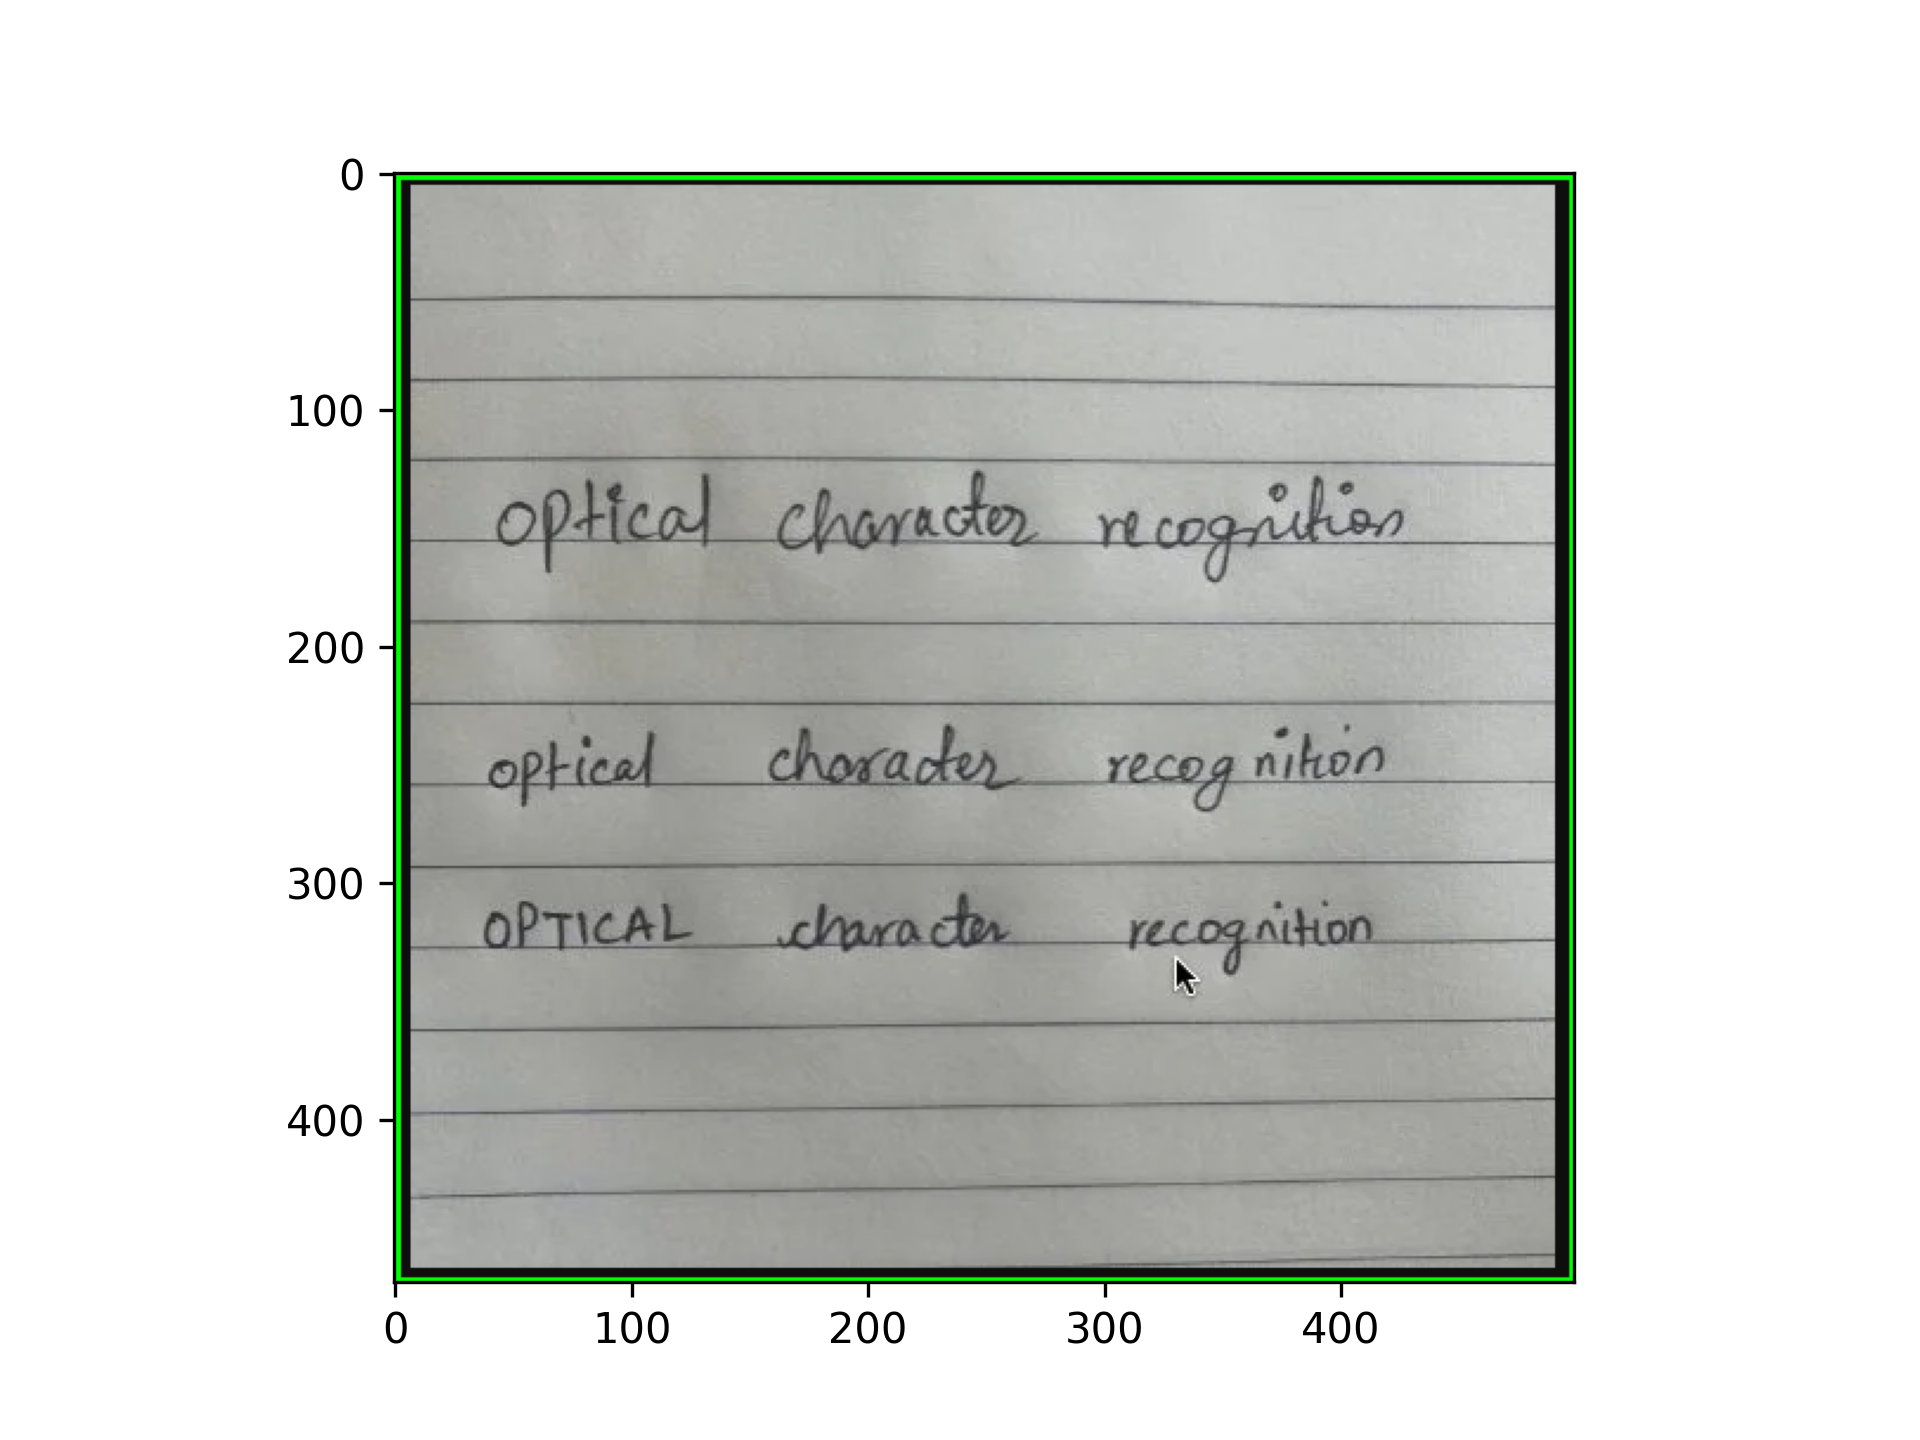 0
100
optical character recognition
200
optical character recognition
300
OPTICAL character recognition
400
0 100 200 300 400